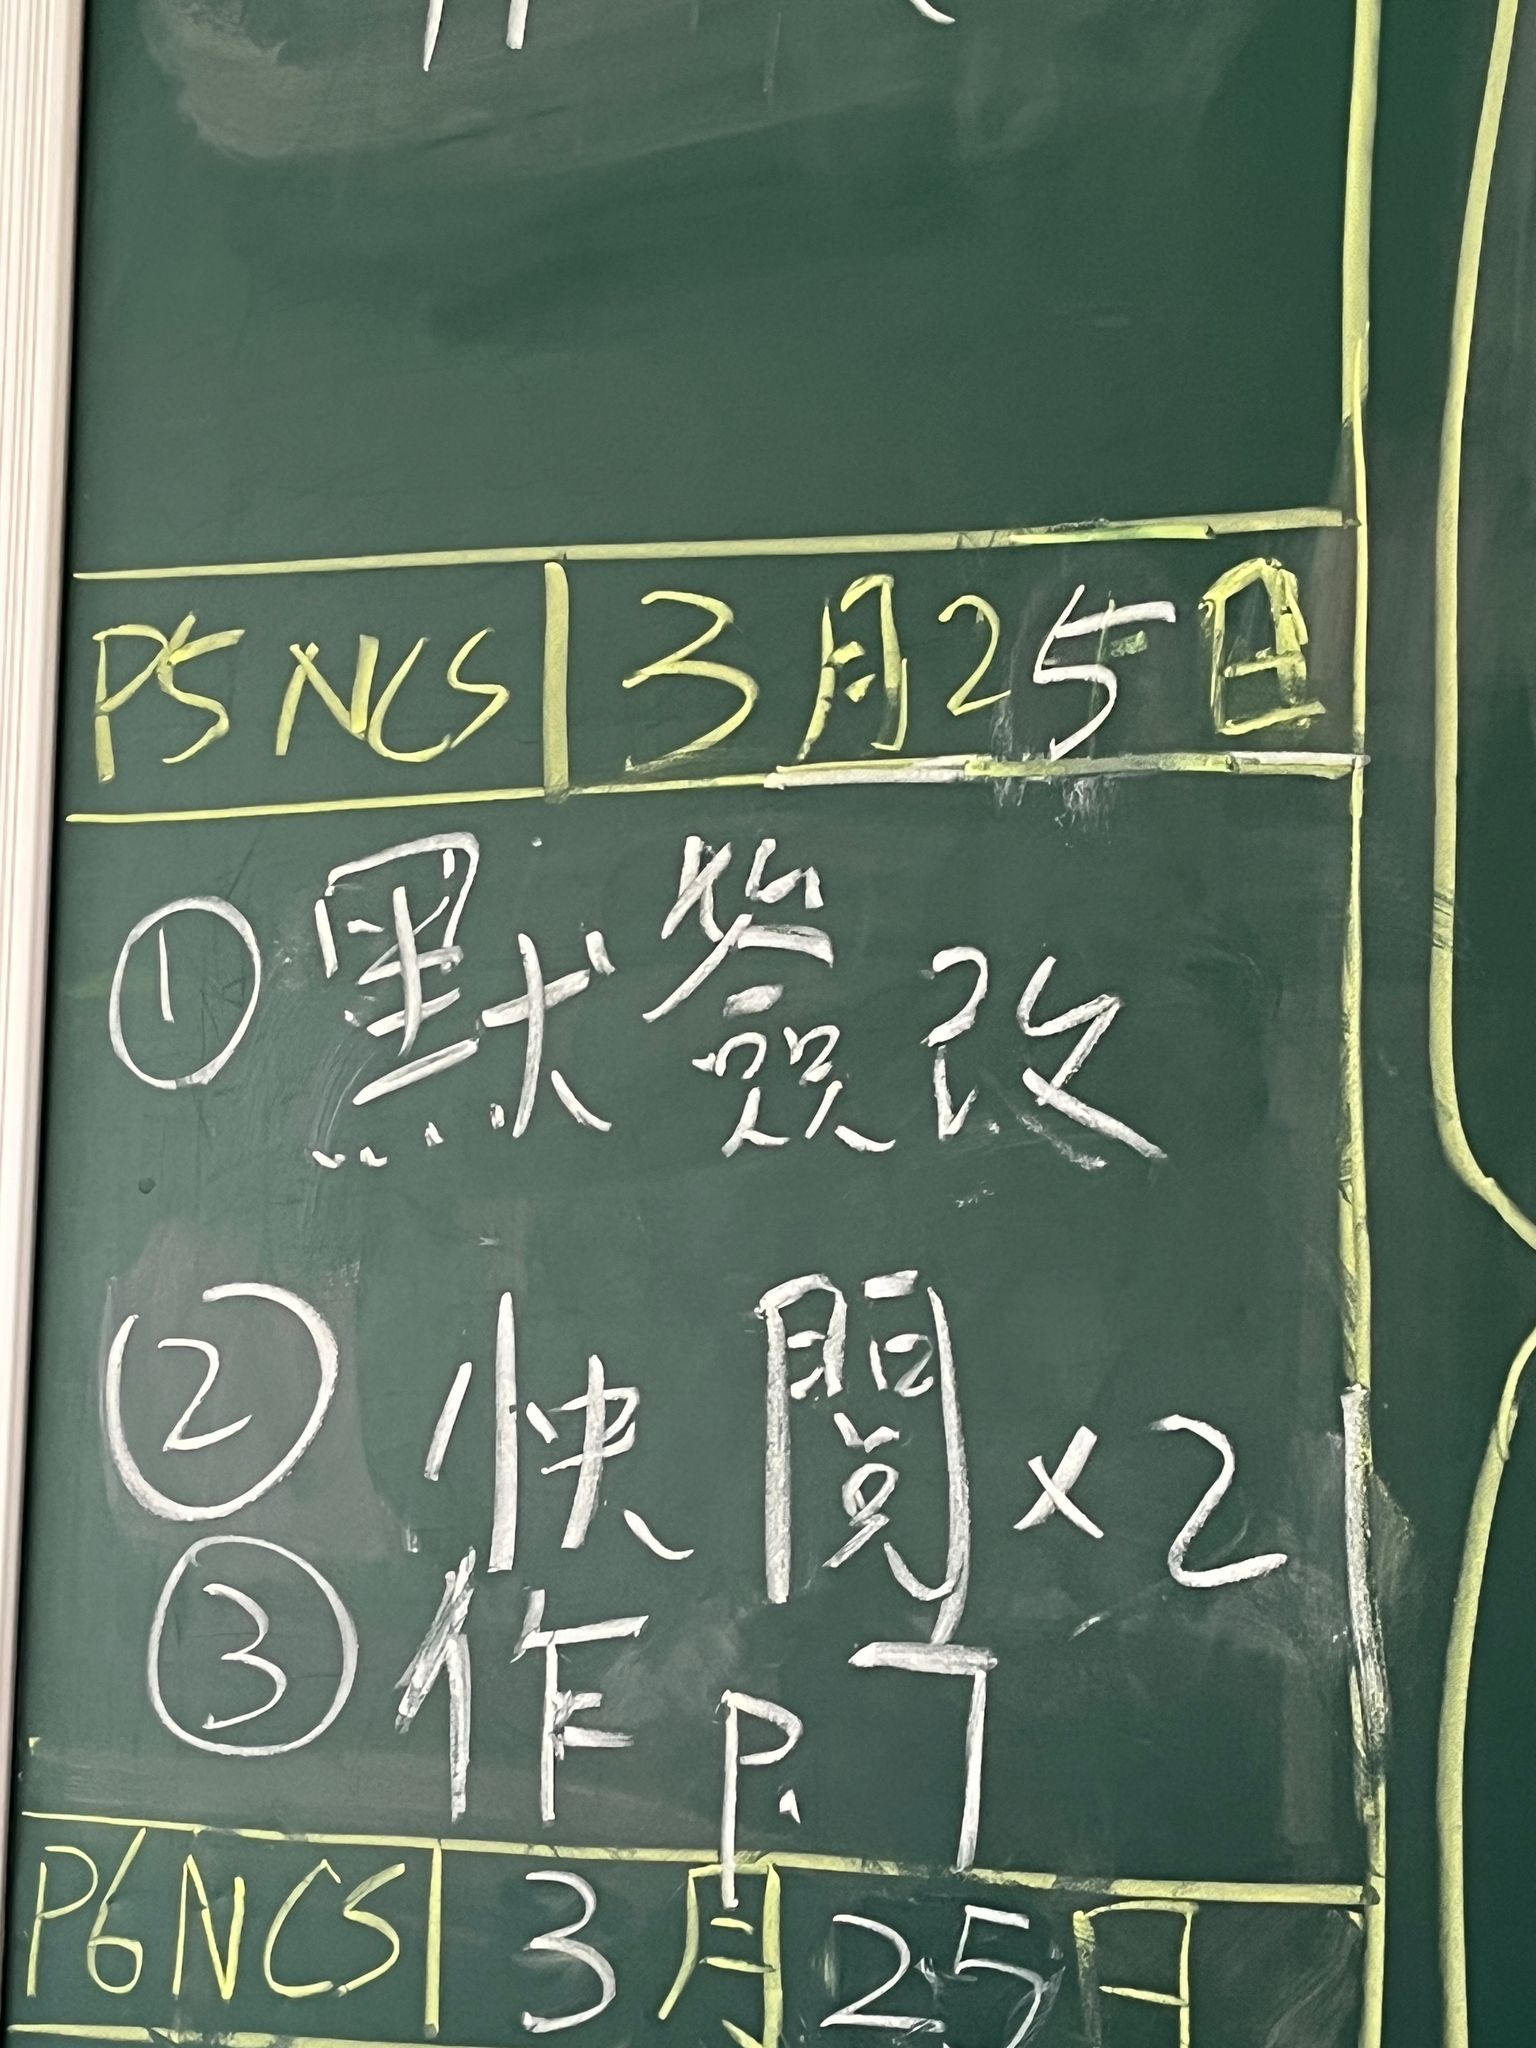 P5 NCS 3月25日
① 默簽改
② 快閱×2
③ 作 P.7
P6 NCS 3月25日